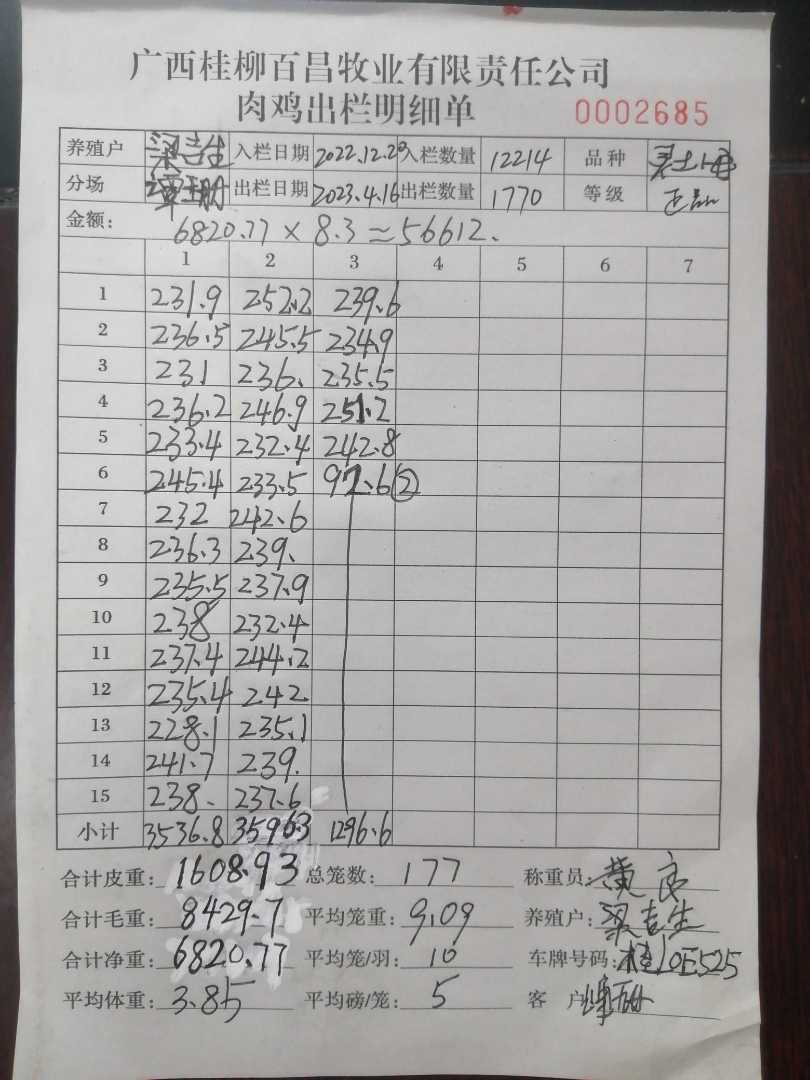 广西桂柳百昌牧业有限责任公司
肉鸡出栏明细单 0002685
养殖户 梁吉生 入栏日期 2022.12.20 入栏数量 12214 品种 灵土
分场 出栏日期 2023.4.16 出栏数量 1770 等级 正品
金额: 6820.77 × 8.3 = 56612.
1 2 3 4 5 6 7
1 231.9 252.2 239.6
2 236.5 245.5 234.9
3 231 236. 235.5
4 236.2 246.9 251.2
5 233.4 232.4 242.8
6 245.4 233.5 92.6 ②
7 232 242.6
8 236.3 239.
9 235.5 237.9
10 238 232.4
11 237.4 244.2
12 235.4 242
13 228.1 235.1
14 241.7 239.
15 238. 237.6
小计 3536.8 3596.3 1296.6
合计皮重: 1608.93 总笼数: 177 称重员: 黄
合计毛重: 8429.7 平均笼重: 9.09 养殖户: 梁吉生
合计净重: 6820.77 平均笼/羽: 10 车牌号码: 桂10E525
平均体重: 3.85 平均磅/笼: 5 客 户